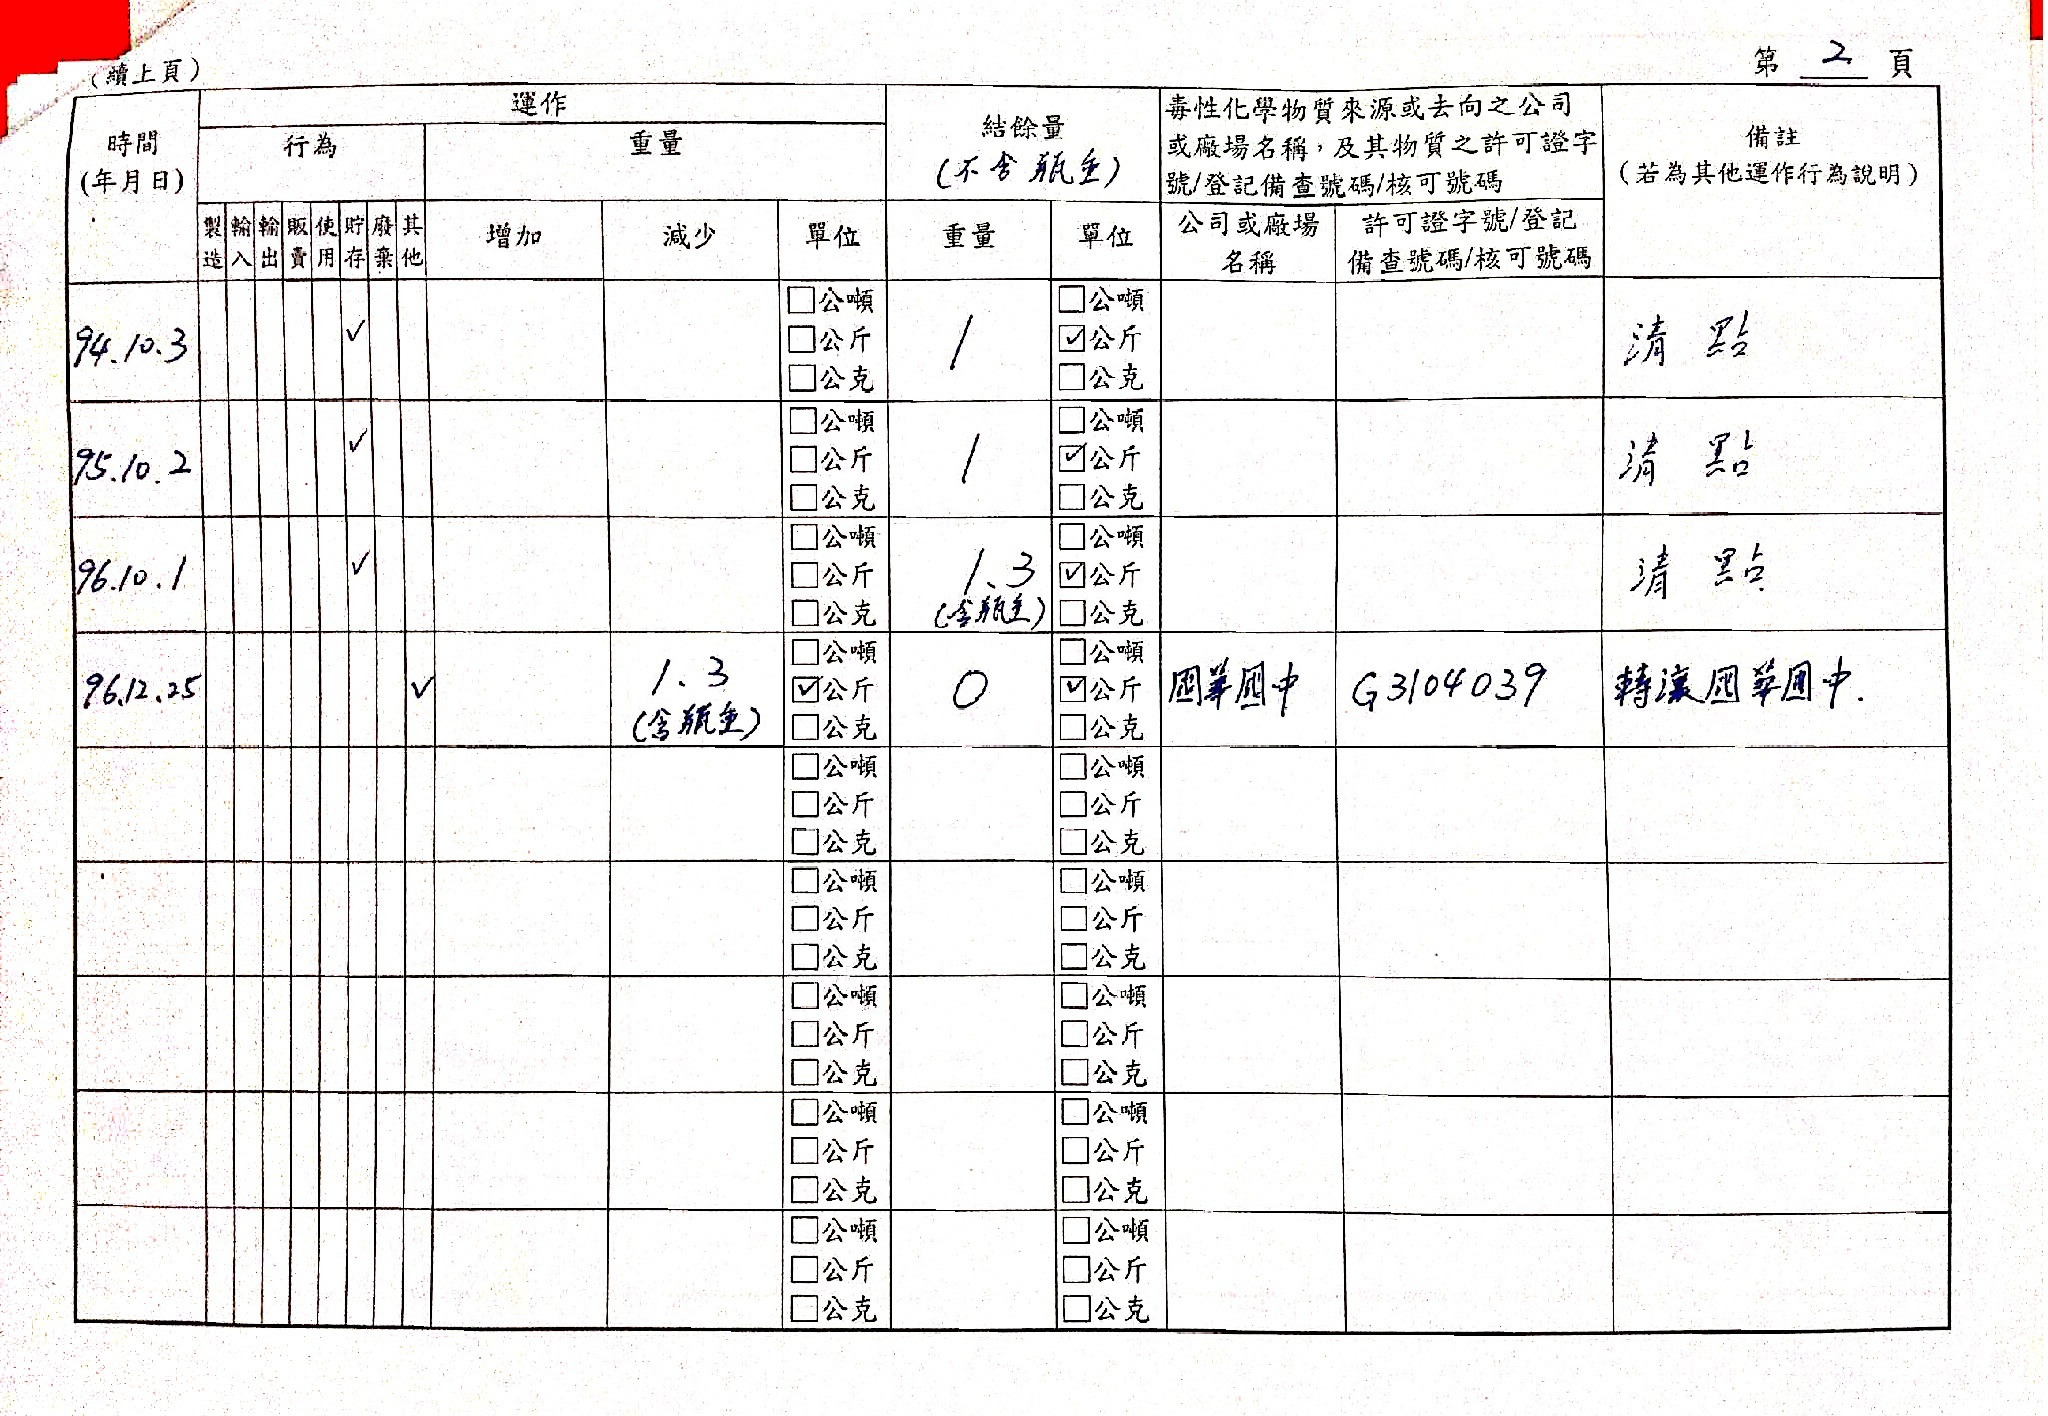 (續上頁)
第 2 頁
時間
(年月日)
運作
行為
重量
結餘量
(不含瓶重)
毒性化學物質來源或去向之公司
或廠場名稱，及其物質之許可證字
號/登記備查號碼/核可號碼
備註
(若為其他運作行為說明)
製造 輸入 輸出 販賣 使用 貯存 廢棄 其他
增加
減少
單位
重量
單位
公司或廠場
名稱
許可證字號/登記
備查號碼/核可號碼
94.10.3 ✓ □公噸 □公斤 □公克 1 □公噸 ☑公斤 □公克 清點
95.10.2 ✓ □公噸 □公斤 □公克 1 □公噸 ☑公斤 □公克 清點
96.10.1 ✓ □公噸 □公斤 □公克 1.3 (含瓶重) □公噸 ☑公斤 □公克 清點
96.12.25 ✓ 1.3 (含瓶重) □公噸 ☑公斤 □公克 0 □公噸 ☑公斤 □公克 國華國中 G3104039 轉讓國華國中.
□公噸 □公斤 □公克 □公噸 □公斤 □公克
□公噸 □公斤 □公克 □公噸 □公斤 □公克
□公噸 □公斤 □公克 □公噸 □公斤 □公克
□公噸 □公斤 □公克 □公噸 □公斤 □公克
□公噸 □公斤 □公克 □公噸 □公斤 □公克